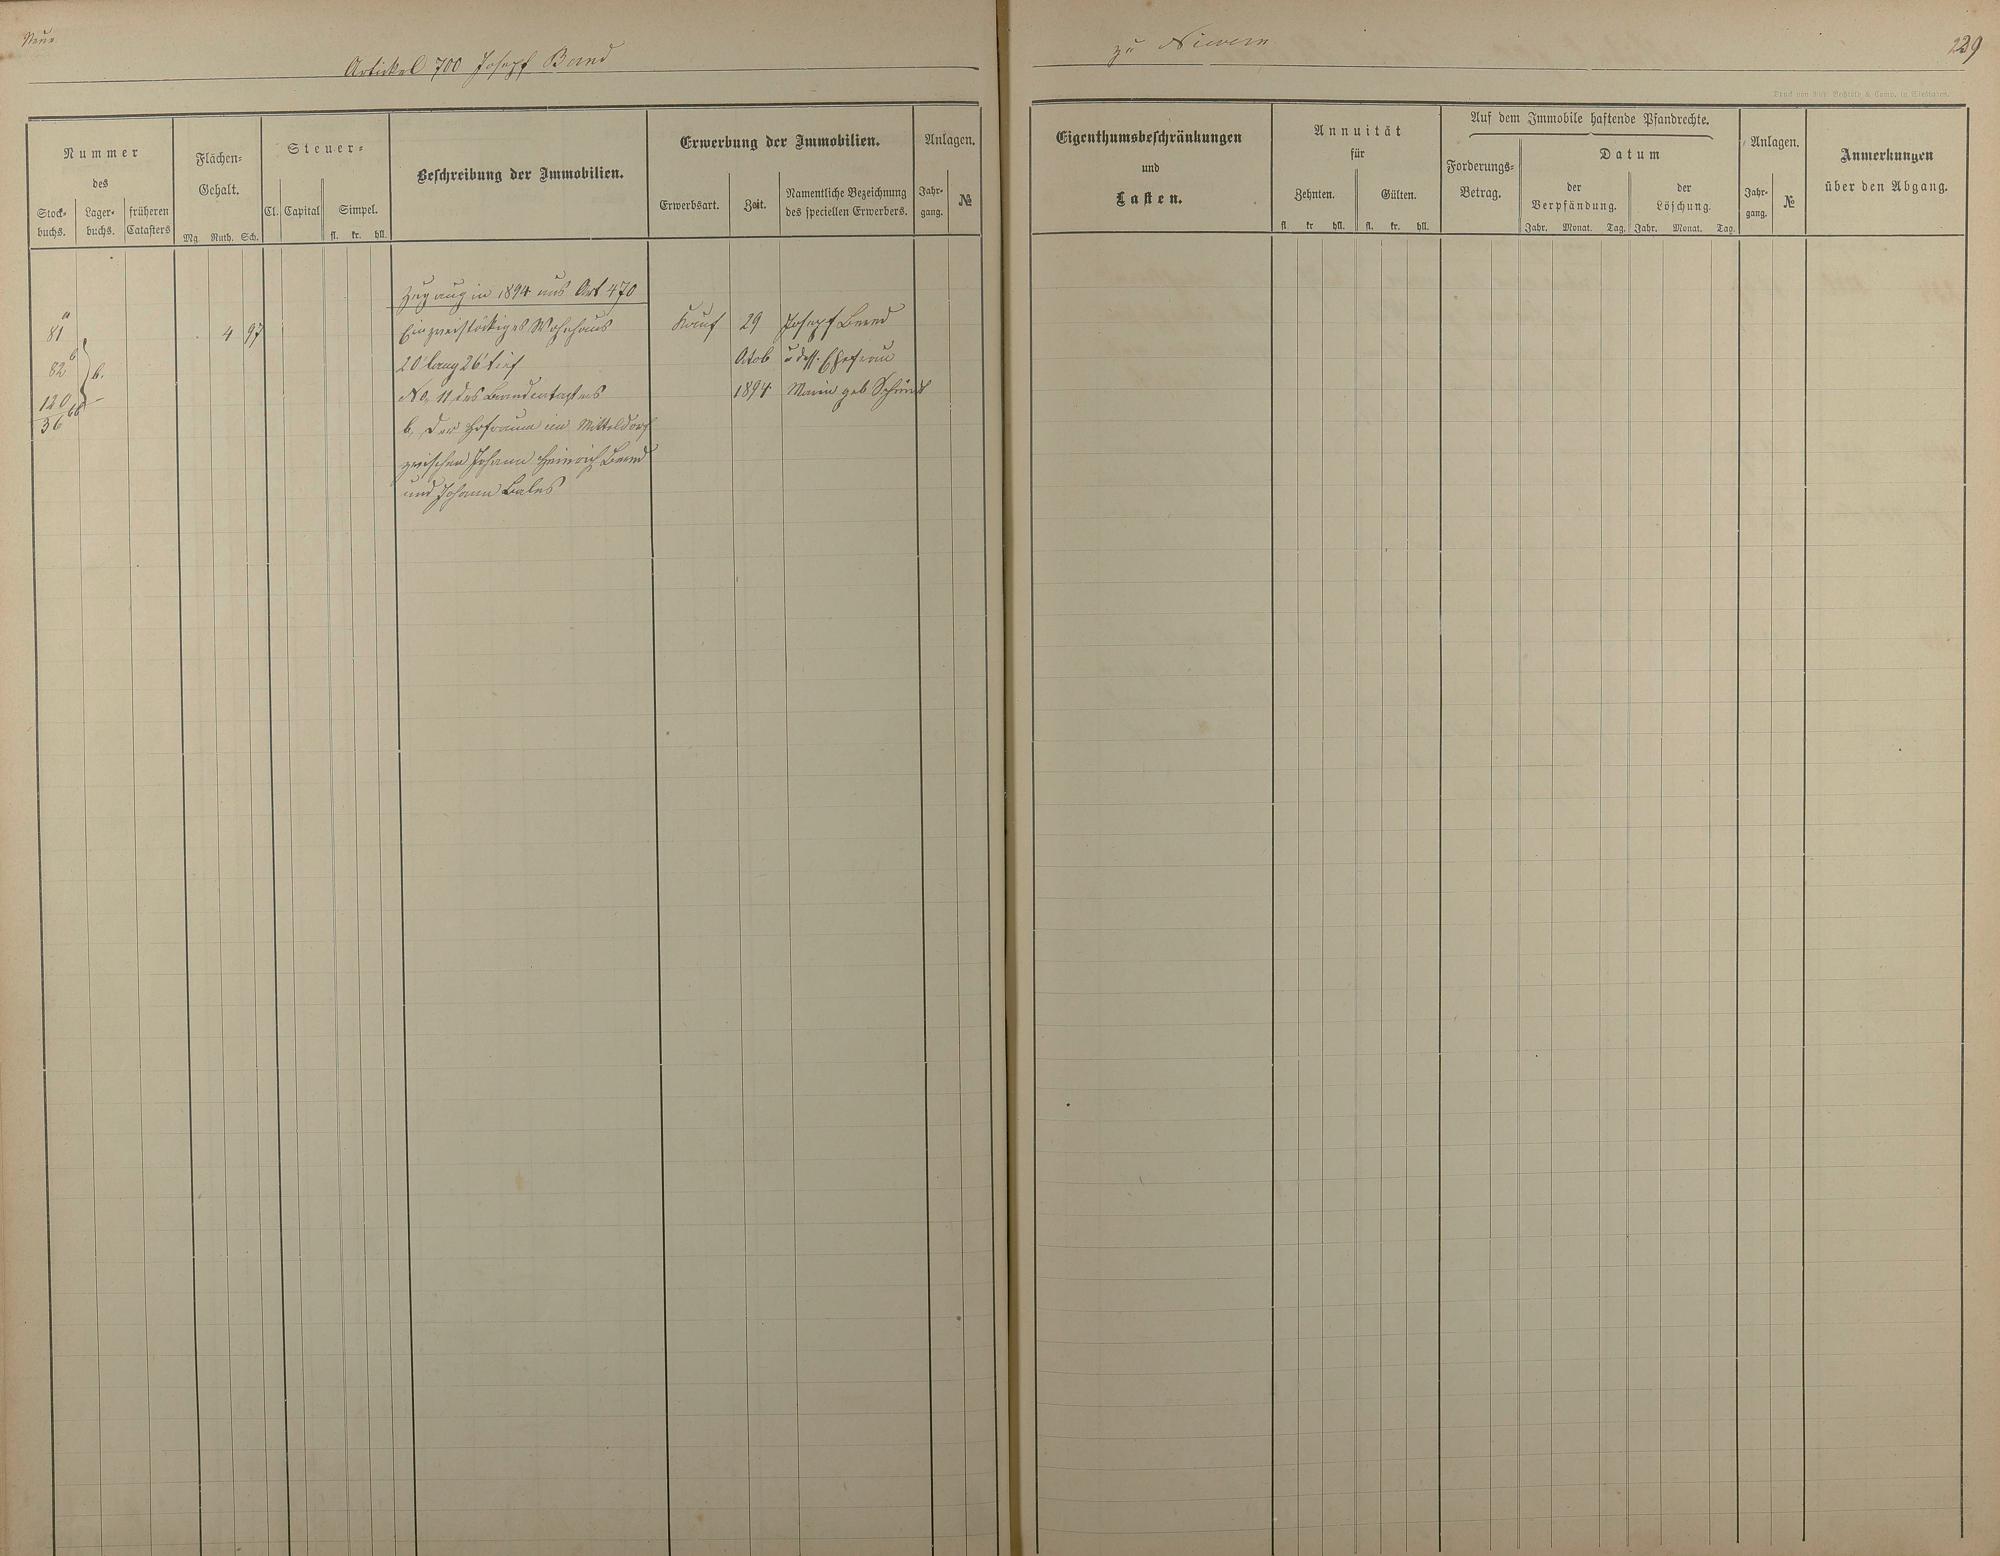 Neue
Artikel 700 Josepf Bend
zu Nievern
229
Nummer
des
Stock-
buchs.
Lager-
buchs.
früheren
Catasters
Flächen-
Gehalt.
Mg. Ruth. Sch.
Steuer-
Cl. Capital Simpel.
fl. kr. hll.
Beschreibung der Immobilien.
Erwerbung der Immobilien.
Erwerbsart. Zeit.
Namentliche Bezeichnung
des speciellen Erwerbers.
Anlagen.
Jahr-
gang.
№
Eigenthumsbeschränkungen
und
Lasten.
Annuität
für
Zehnten. Gülten.
fl kr hll. fl. kr. hll.
Auf dem Immobile haftende Pfandrechte.
Forderungs-
Betrag.
Datum
der
Verpfändung.
der
Löschung.
Jahr. Monat. Tag. Jahr. Monat. Tag.
Anlagen.
Jahr-
gang.
№
Anmerkungen
über den Abgang.
Zugang in 1894 aus Art 470
81 a 4 97 Ein zweistöckiges Wohnhaus Kauf 29 Josepf Bend
82 b 20' lang 26' tief Octob u dess. Ehefrau
120 No 11 des Brandcatasters 1894 Maria geb Schmidt
36 b. Der Hofraum im Mitteldorf
zwischen Johann Heinrich Bend
und Johann Bales